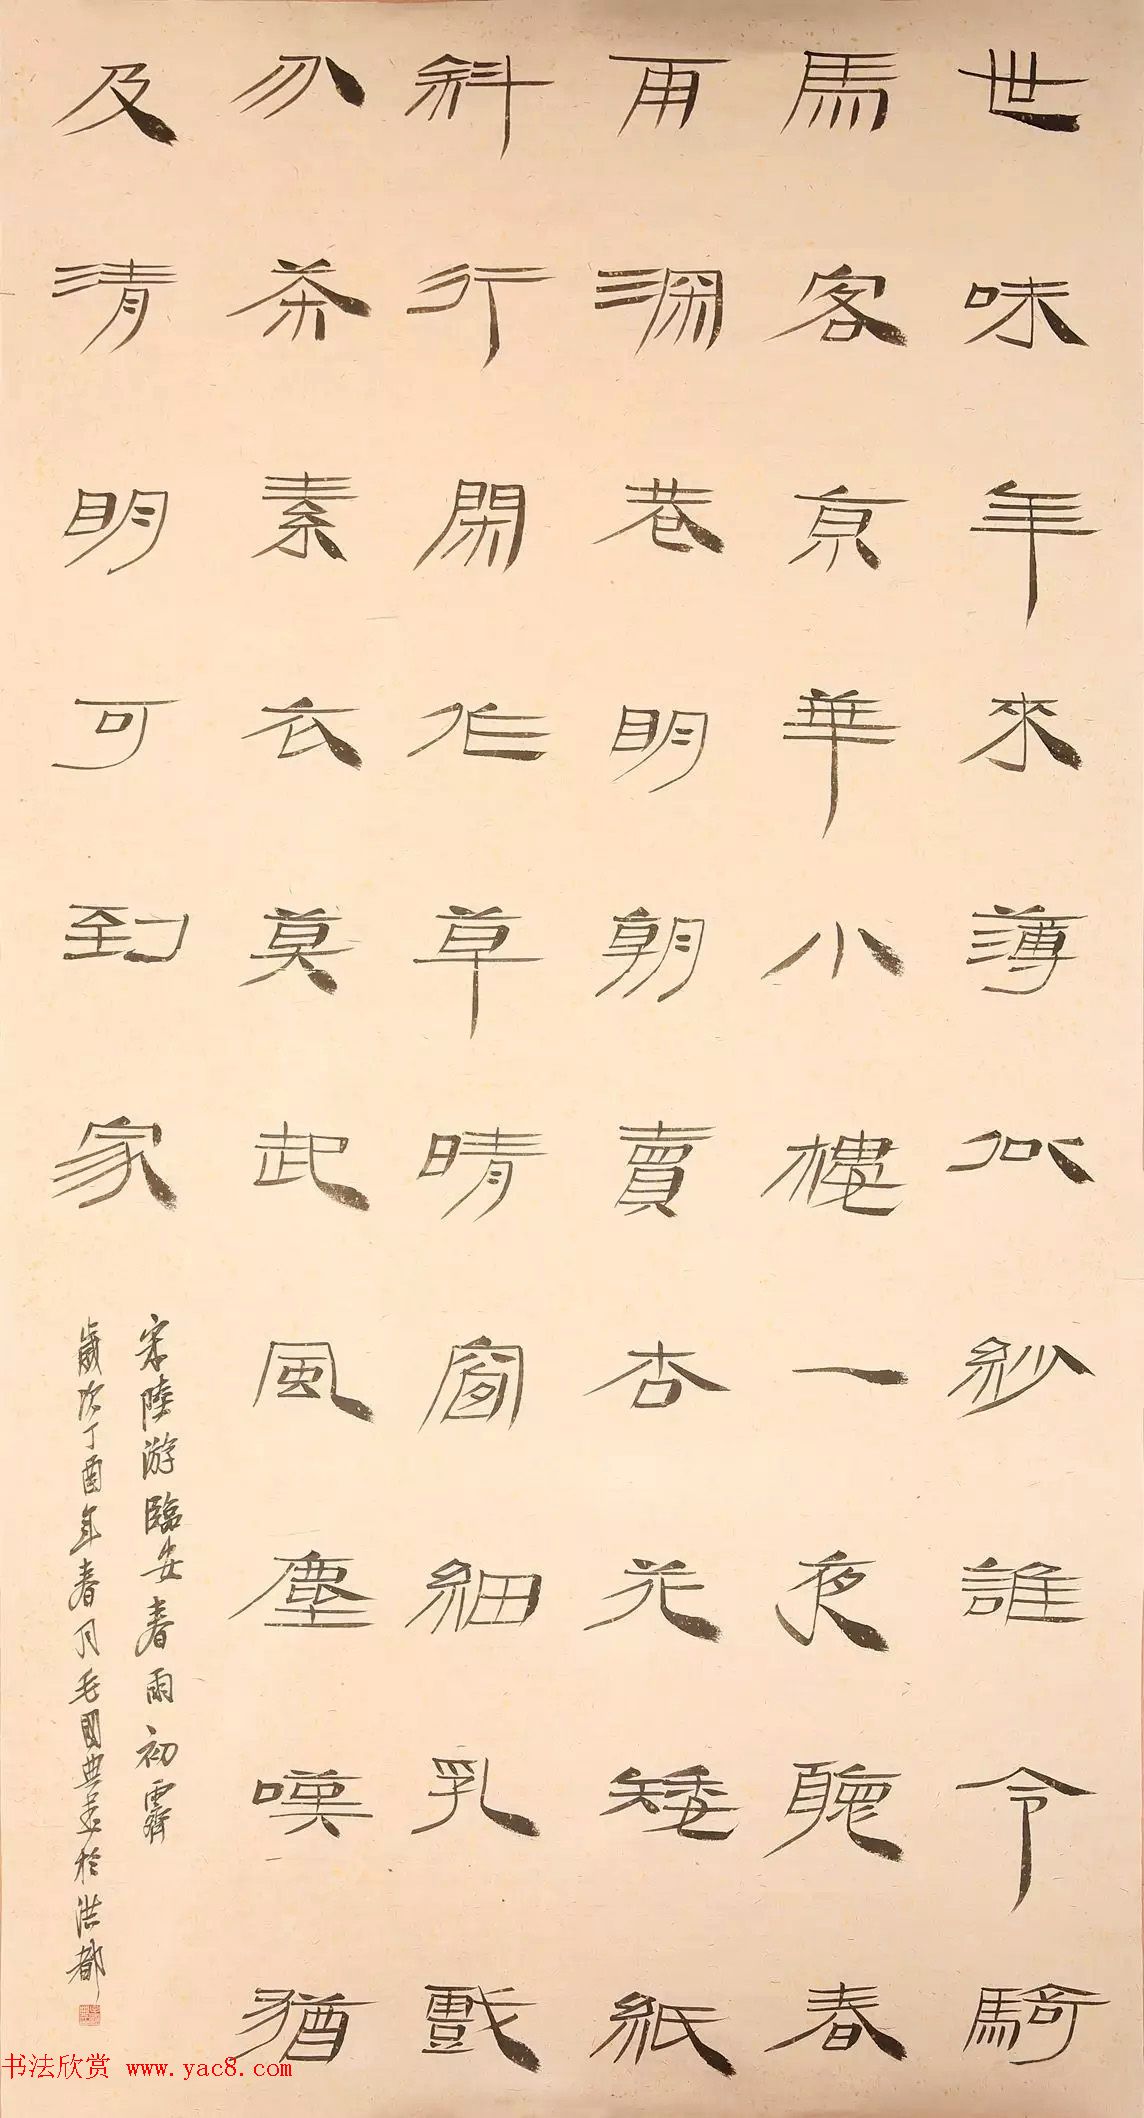 世味年來薄似紗誰令騎
馬客京華小樓一夜聽春
雨深巷明朝賣杏花矮紙
斜行閑作草晴窗細乳戲
分茶素衣莫起風塵嘆猶
及清明可到家
宋陸游臨安春雨初霽
歲次丁酉年春月毛國典書於洪都
书法欣赏 www.yac8.com